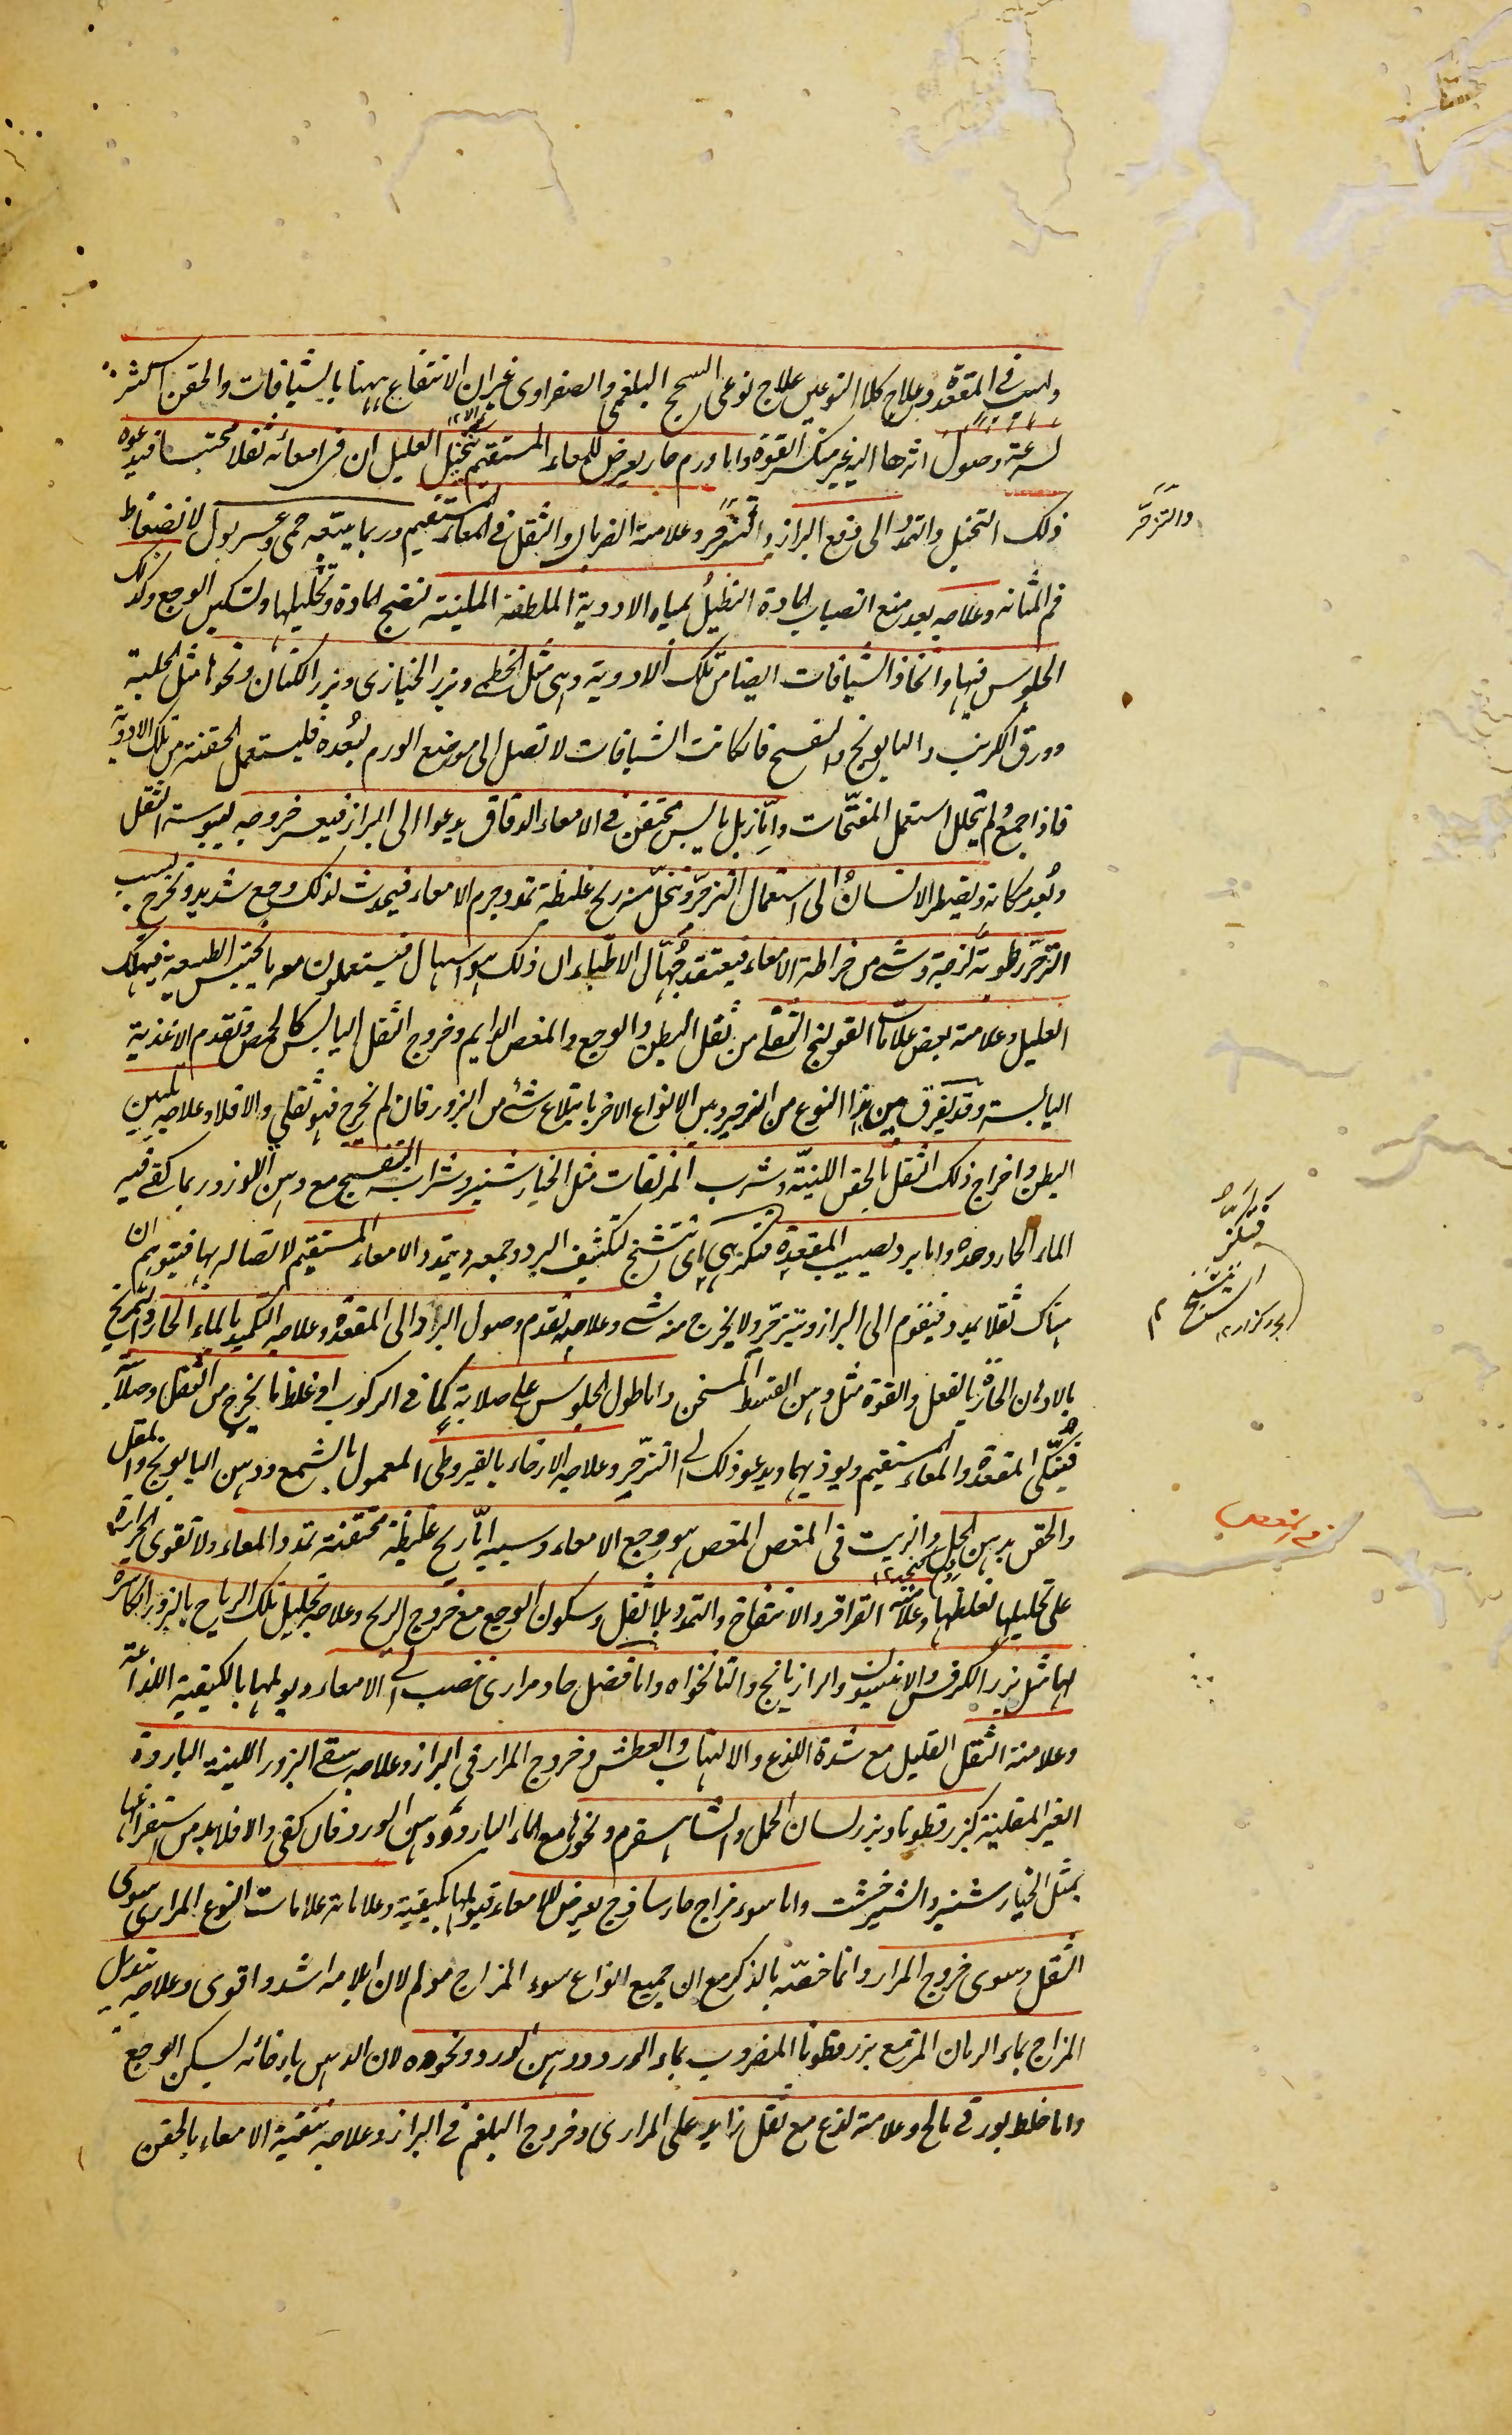 ولهيب في المقعدة وعلاج كلا النوعين علاج نوعى السحج البلغمي والصفراوى غير ان الانتفاع ههنا بالشيافات والحقن اكثر
لسرعة وصول اثرها اليه غير منكسر القوة واما ورم حار يعرض للمعاء المستقيم يتخيل العليل ان فى امعائه ثفلا محتبسا فيدعوه
ذلك التخيل والتمدد الى دفع البراز والتزحر وعلامته الضربان والثقل فى المعاء المستقيم وربما يتبعه حمى وعسر بول لانضغاط
فم المثانة وعلاجه بعد منع انصباب المادة التنطيل بمياه الادوية الملطفة الملينة لنضج المادة وتحليلها وتسكين الوجع وكذلك
الجلوس فيها واتخاذ الشيافات ايضا من تلك الادوية وهى مثل الخطمى وبزر الخبازى وبزر الكتان ونحوها مثل الحلبة
وورق الكرنب والبابونج والبنفسج فان كانت الشيافات لا تصل الى موضع الورم لبعده فليستعمل الحقنة من تلك الادوية
فاذا جمع ولم يتحلل استعمل المفتحات واما زبل يابس محتقن فى الامعاء الدقاق يدعوا الى البراز فيعسر خروجه ليبوسة الثفل
وبعد مكانه ويضطر الانسان الى استعمال التزحر وتنحل منه ريح غليظة تمدد جرم الامعاء فيحدث لذلك وجع شديد وتخرج بسبب
التزحر رطوبة لزجة وشئ من خراطة الامعاء فيعتقد جهال الاطباء ان ذلك هو اسهال فيستعملون معه ما يحبس الطبيعة فيهلك
العليل وعلامته بعض علامات القولنج الثفلى من ثقل البطن والوجع والمغص الدايم وخروج الثفل اليابس كالحمص وتقدم الاغذية
اليابسة وقد يفرق بين هذا النوع من الزحير وبين الانواع الاخر بابتلاع شئ من البزور فان لم تخرج فهو ثفلي والا فلا وعلاجه تليين
البطن واخراج ذلك الثفل بالحقن اللينة وشرب المزلقات مثل الخيارشنبر وشراب البنفسج مع دهن اللوز وربما كفى فيه
الماء الحار وحده واما برد يصيب المقعدة فتكزز هى اى تتشنج لتكثيف البرد وجمعه ويتمدد الامعاء المستقيم لاتصاله بها فيتوهم ان
هناك ثفلا يمدد فيقوم الى البراز ويتزحر ولا يخرج منه شئ وعلامته تقدم وصول البرد الى المقعدة وعلاجه التكميد بالماء الحار والتمريخ
بالادهان الحارة بالفعل والقوة مثل دهن القسط المسخن واما طول الجلوس على صلابة كما فى الركوب او غلظ ما يخرج من الثفل وصلابته
فينكى المقعدة والمعاء المستقيم ويوذيهما ويدعو ذلك الى التزحر وعلاجه الارخاء بالقيروطى المعمول بالشمع ودهن البابونج والمقل
والحقن بدهن الحل والزيت فى المغص المغص هو وجع الامعاء وسببه اما ريح غليظة محتقنة تمدد المعاء ولا تقوى الحرارة
على تحليلها لغلظها وعلامته القراقر والانتفاخ والتمدد بلا ثقل وسكون الوجع مع خروج الريح وعلاجه تحليل تلك الرياح بالبزور الكاسرة
لها مثل بزر الكرفس والانيسون والرازيانج والنانخواه واما فضل حاد مرارى ينصب الى الامعاء ويولمها بالكيفية اللذاعة
وعلامته الثقل القليل مع شدة اللذع والالتهاب والعطش وخروج المرار فى البراز وعلاجه سقى البزور اللينة الباردة
الغير المقلية كبزر قطونا وبزر لسان الحمل والشاهسفرم ونحوها مع الماء البارد ودهن الورد فان كفى والا فلا بد من استفراغها
بمثل الخيارشنبر والشيرخشت واما سوء مزاج حار ساذج يعرض للامعاء فيولمها بكيفية وعلاماته علامات النوع المرارى سوى
الثقل وسوى خروج المرار وانما خصه بالذكر مع ان جميع انواع سوء المزاج مولم لان ايلامه اشد واقوى وعلاجه تبديل
المزاج بماء الرمان المر مع بزر قطونا المضروب بماء الورد ودهن الورد ونحوه لان الدهن بارخائه يسكن الوجع
واما خلط بورقى مالح وعلامته لذع مع ثقل زايد على المرارى وخروج البلغم فى البراز وعلاجه تنقية الامعاء بالحقن
والتزحر
فتكزز
فى المغص